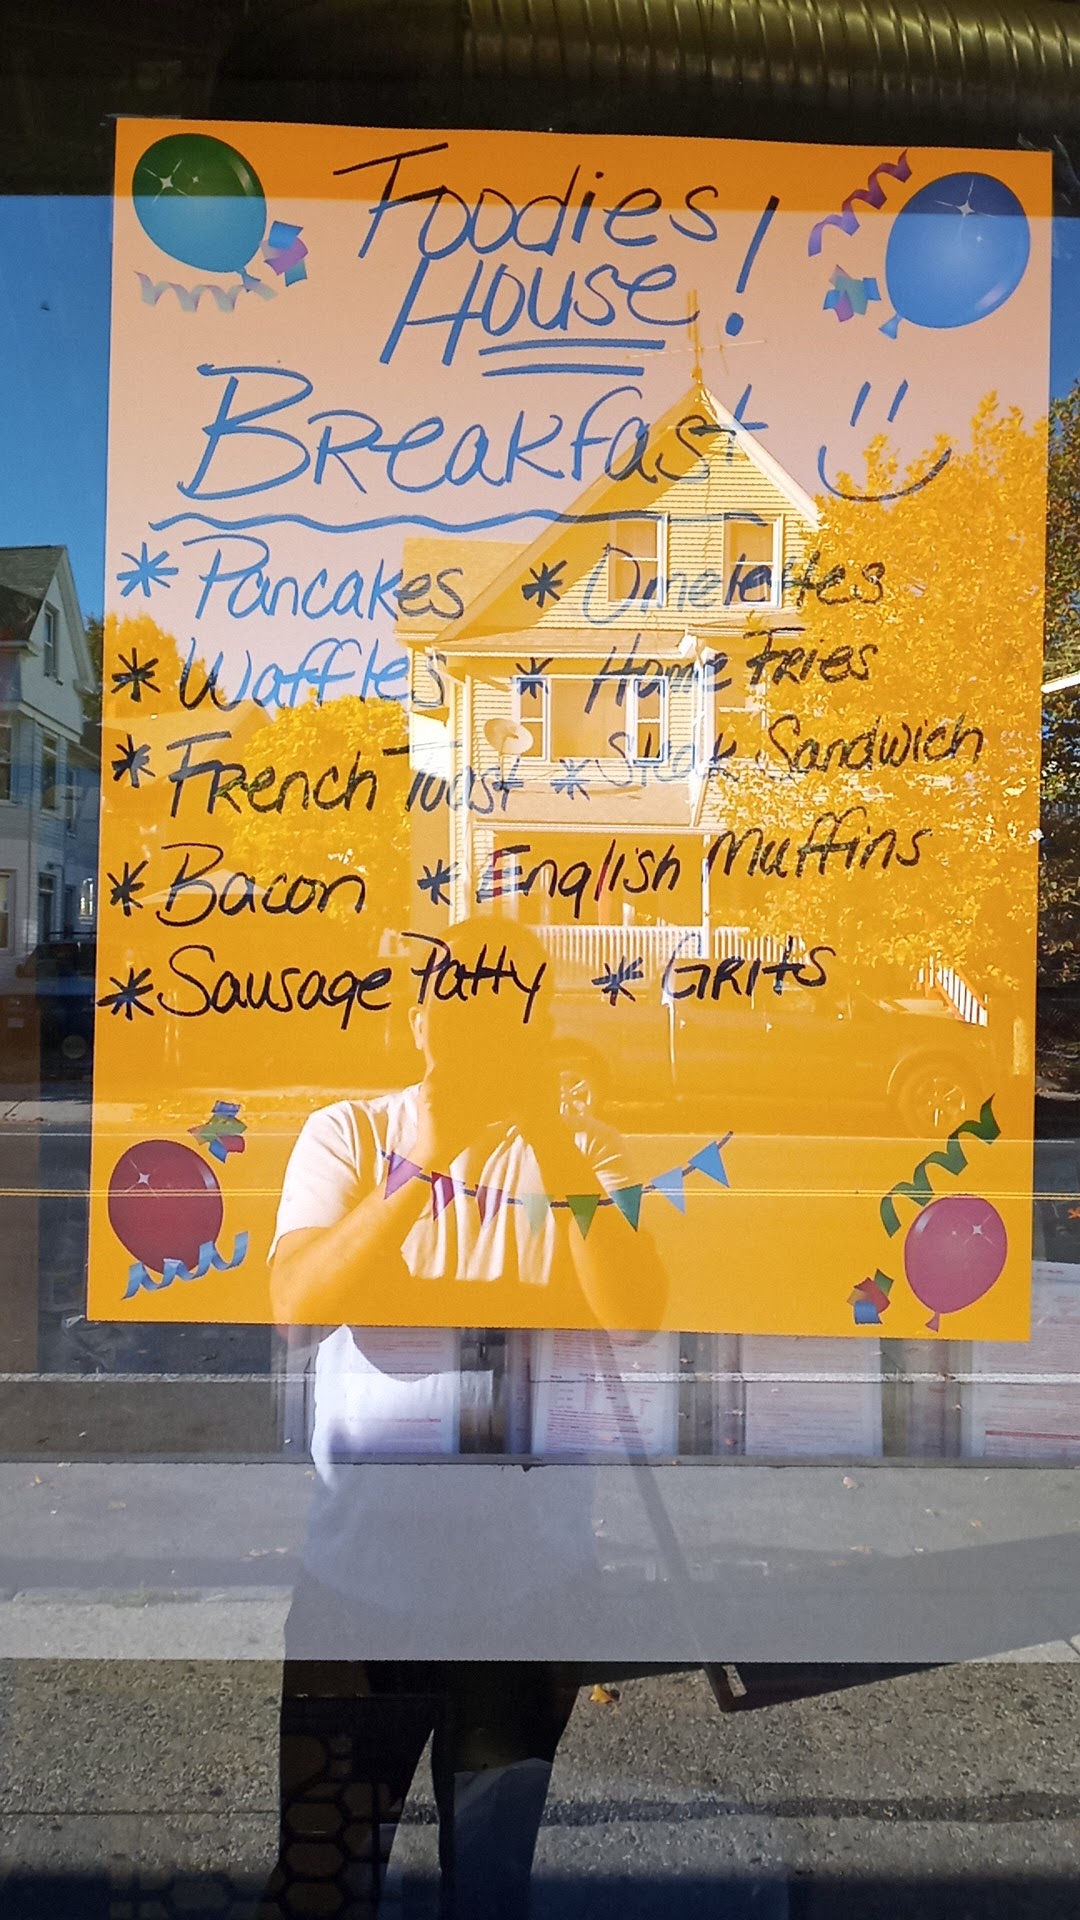 Foodies
House!
Breakfast
* Pancakes * Omelettes
* Waffles * Home Fries
* French Toast * Steak Sandwich
* Bacon * English Muffins
* Sausage Patty * Grits